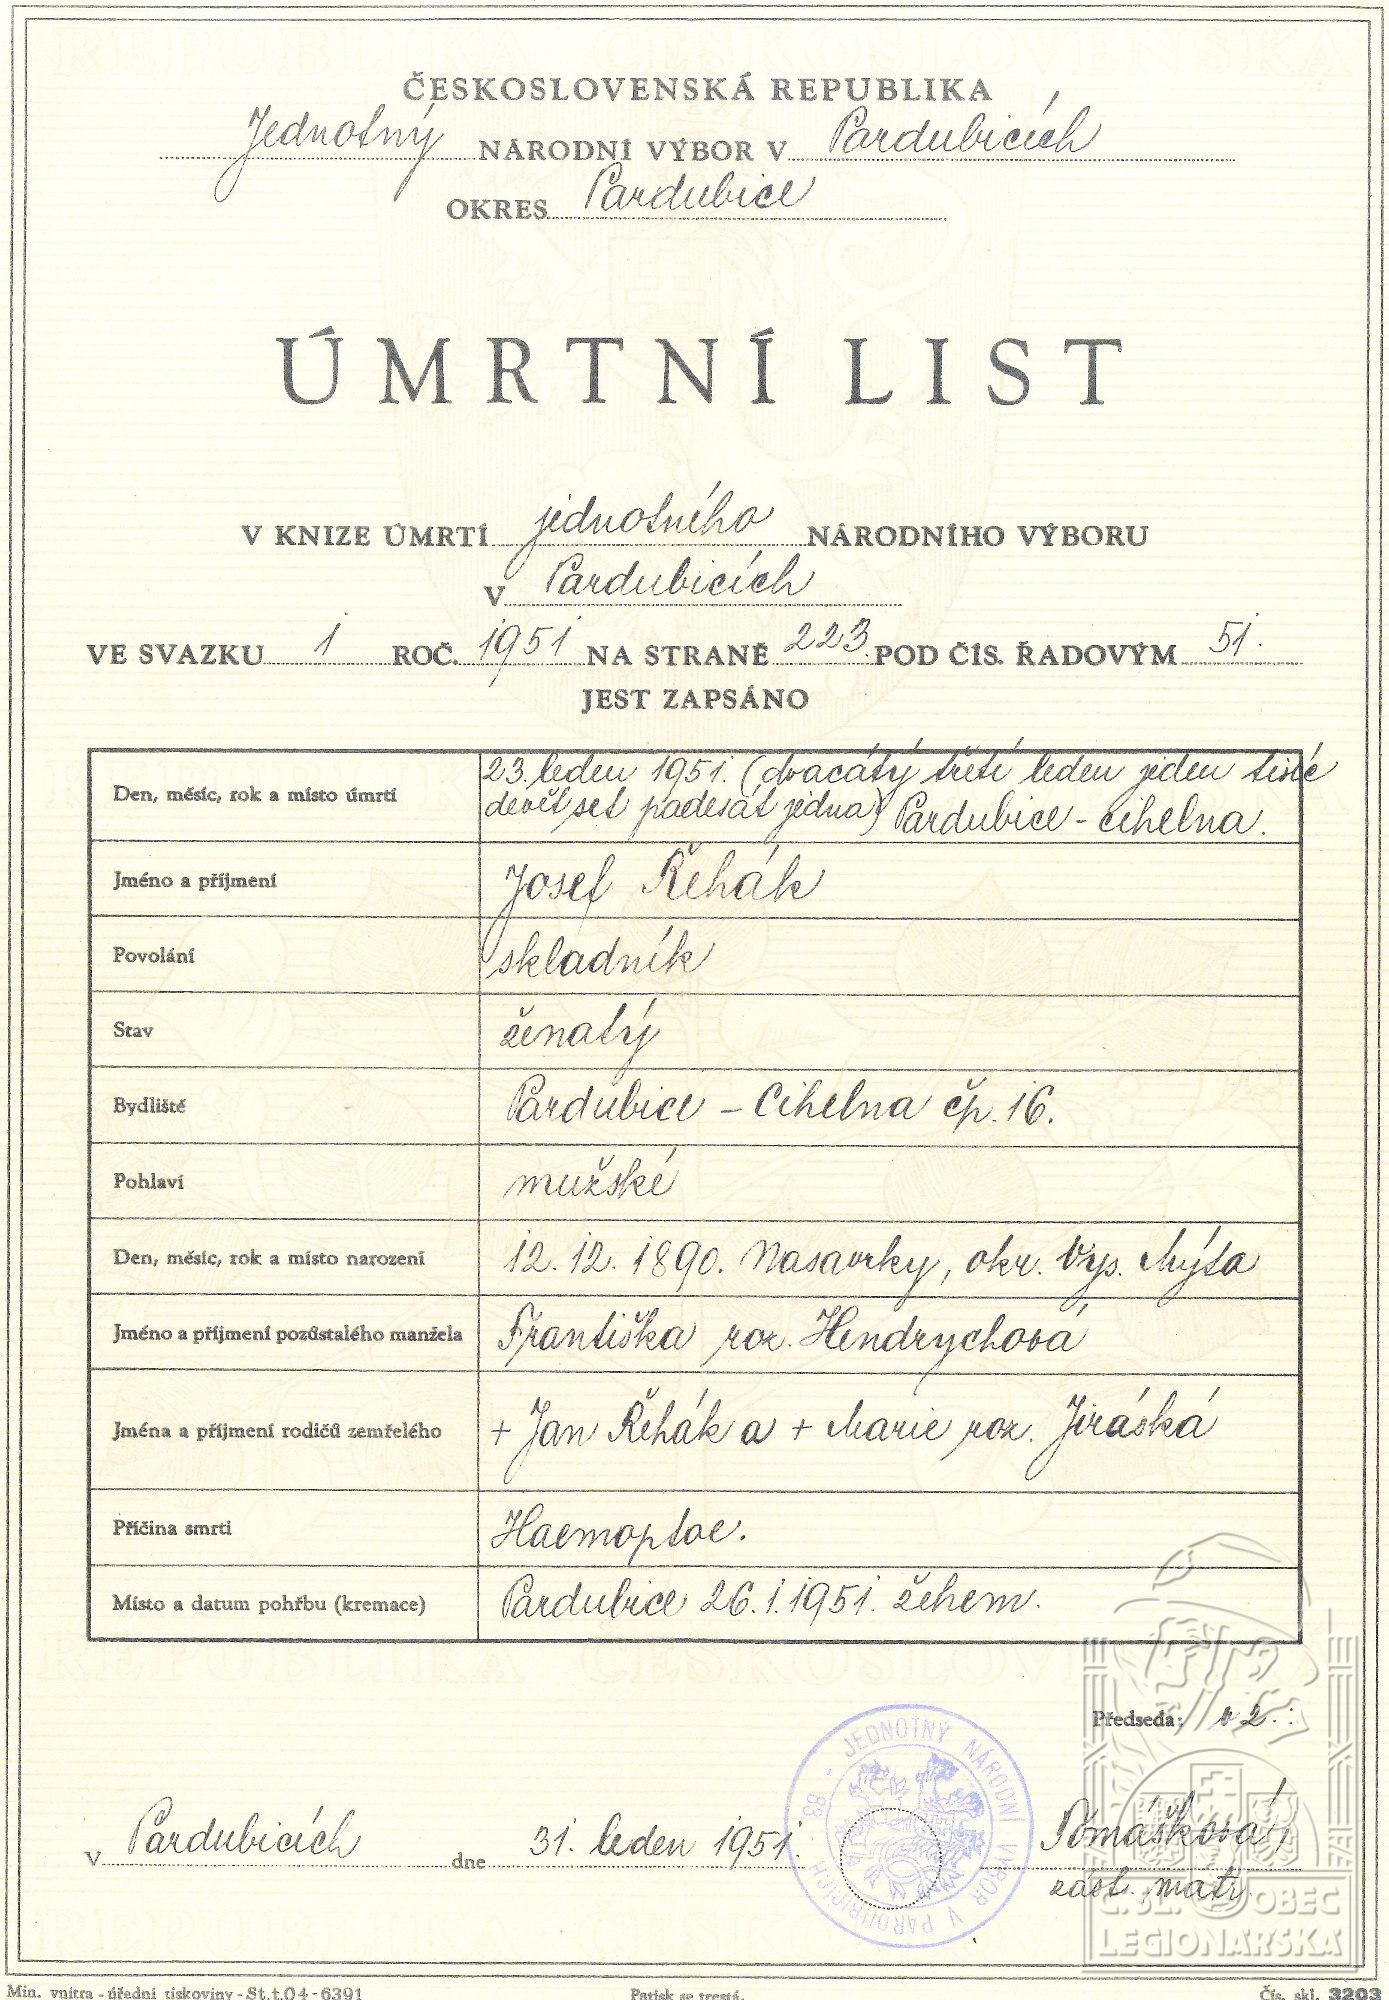 ČESKOSLOVENSKÁ REPUBLIKA
Jednotný NÁRODNÍ VÝBOR V Pardubicích
OKRES Pardubice
ÚMRTNÍ LIST
V KNIZE ÚMRTÍ jednotného NÁRODNÍHO VÝBORU
V Pardubicích
VE SVAZKU 1 ROČ. 1951 NA STRANĚ 223 POD ČÍS. ŘADOVÝM 51.
JEST ZAPSÁNO
Den, měsíc, rok a místo úmrtí 23. leden 1951. (dvacátý třetí leden jeden tisíc
devět set padesát jedna) Pardubice - cihelna.
Jméno a příjmení Josef Řehák
Povolání skladník
Stav ženatý
Bydliště Pardubice - Cihelna čp. 16.
Pohlaví mužské
Den, měsíc, rok a místo narození 12. 12. 1890. Nasavrky, okr. Vys. Mýto
Jméno a příjmení pozůstalého manžela Františka roz. Hendrychová
Jména a příjmení rodičů zemřelého + Jan Řehák a + Marie roz. Jiráská
Příčina smrti Haemoptoe.
Místo a datum pohřbu (kremace) Pardubice 26. 1. 1951. žehem.
Předseda: v z.:
V Pardubicích dne 31. leden 1951.
JEDNOTNÝ NÁRODNÍ VÝBOR V PARDUBICÍCH - 83 -
Tomášková
zást. matr.
Č. SL. OBEC
LEGIONÁŘSKÁ
Min. vnitra - úřední tiskoviny - St.t.04-6391 Patisk se trestá. Čís. skl. 3203